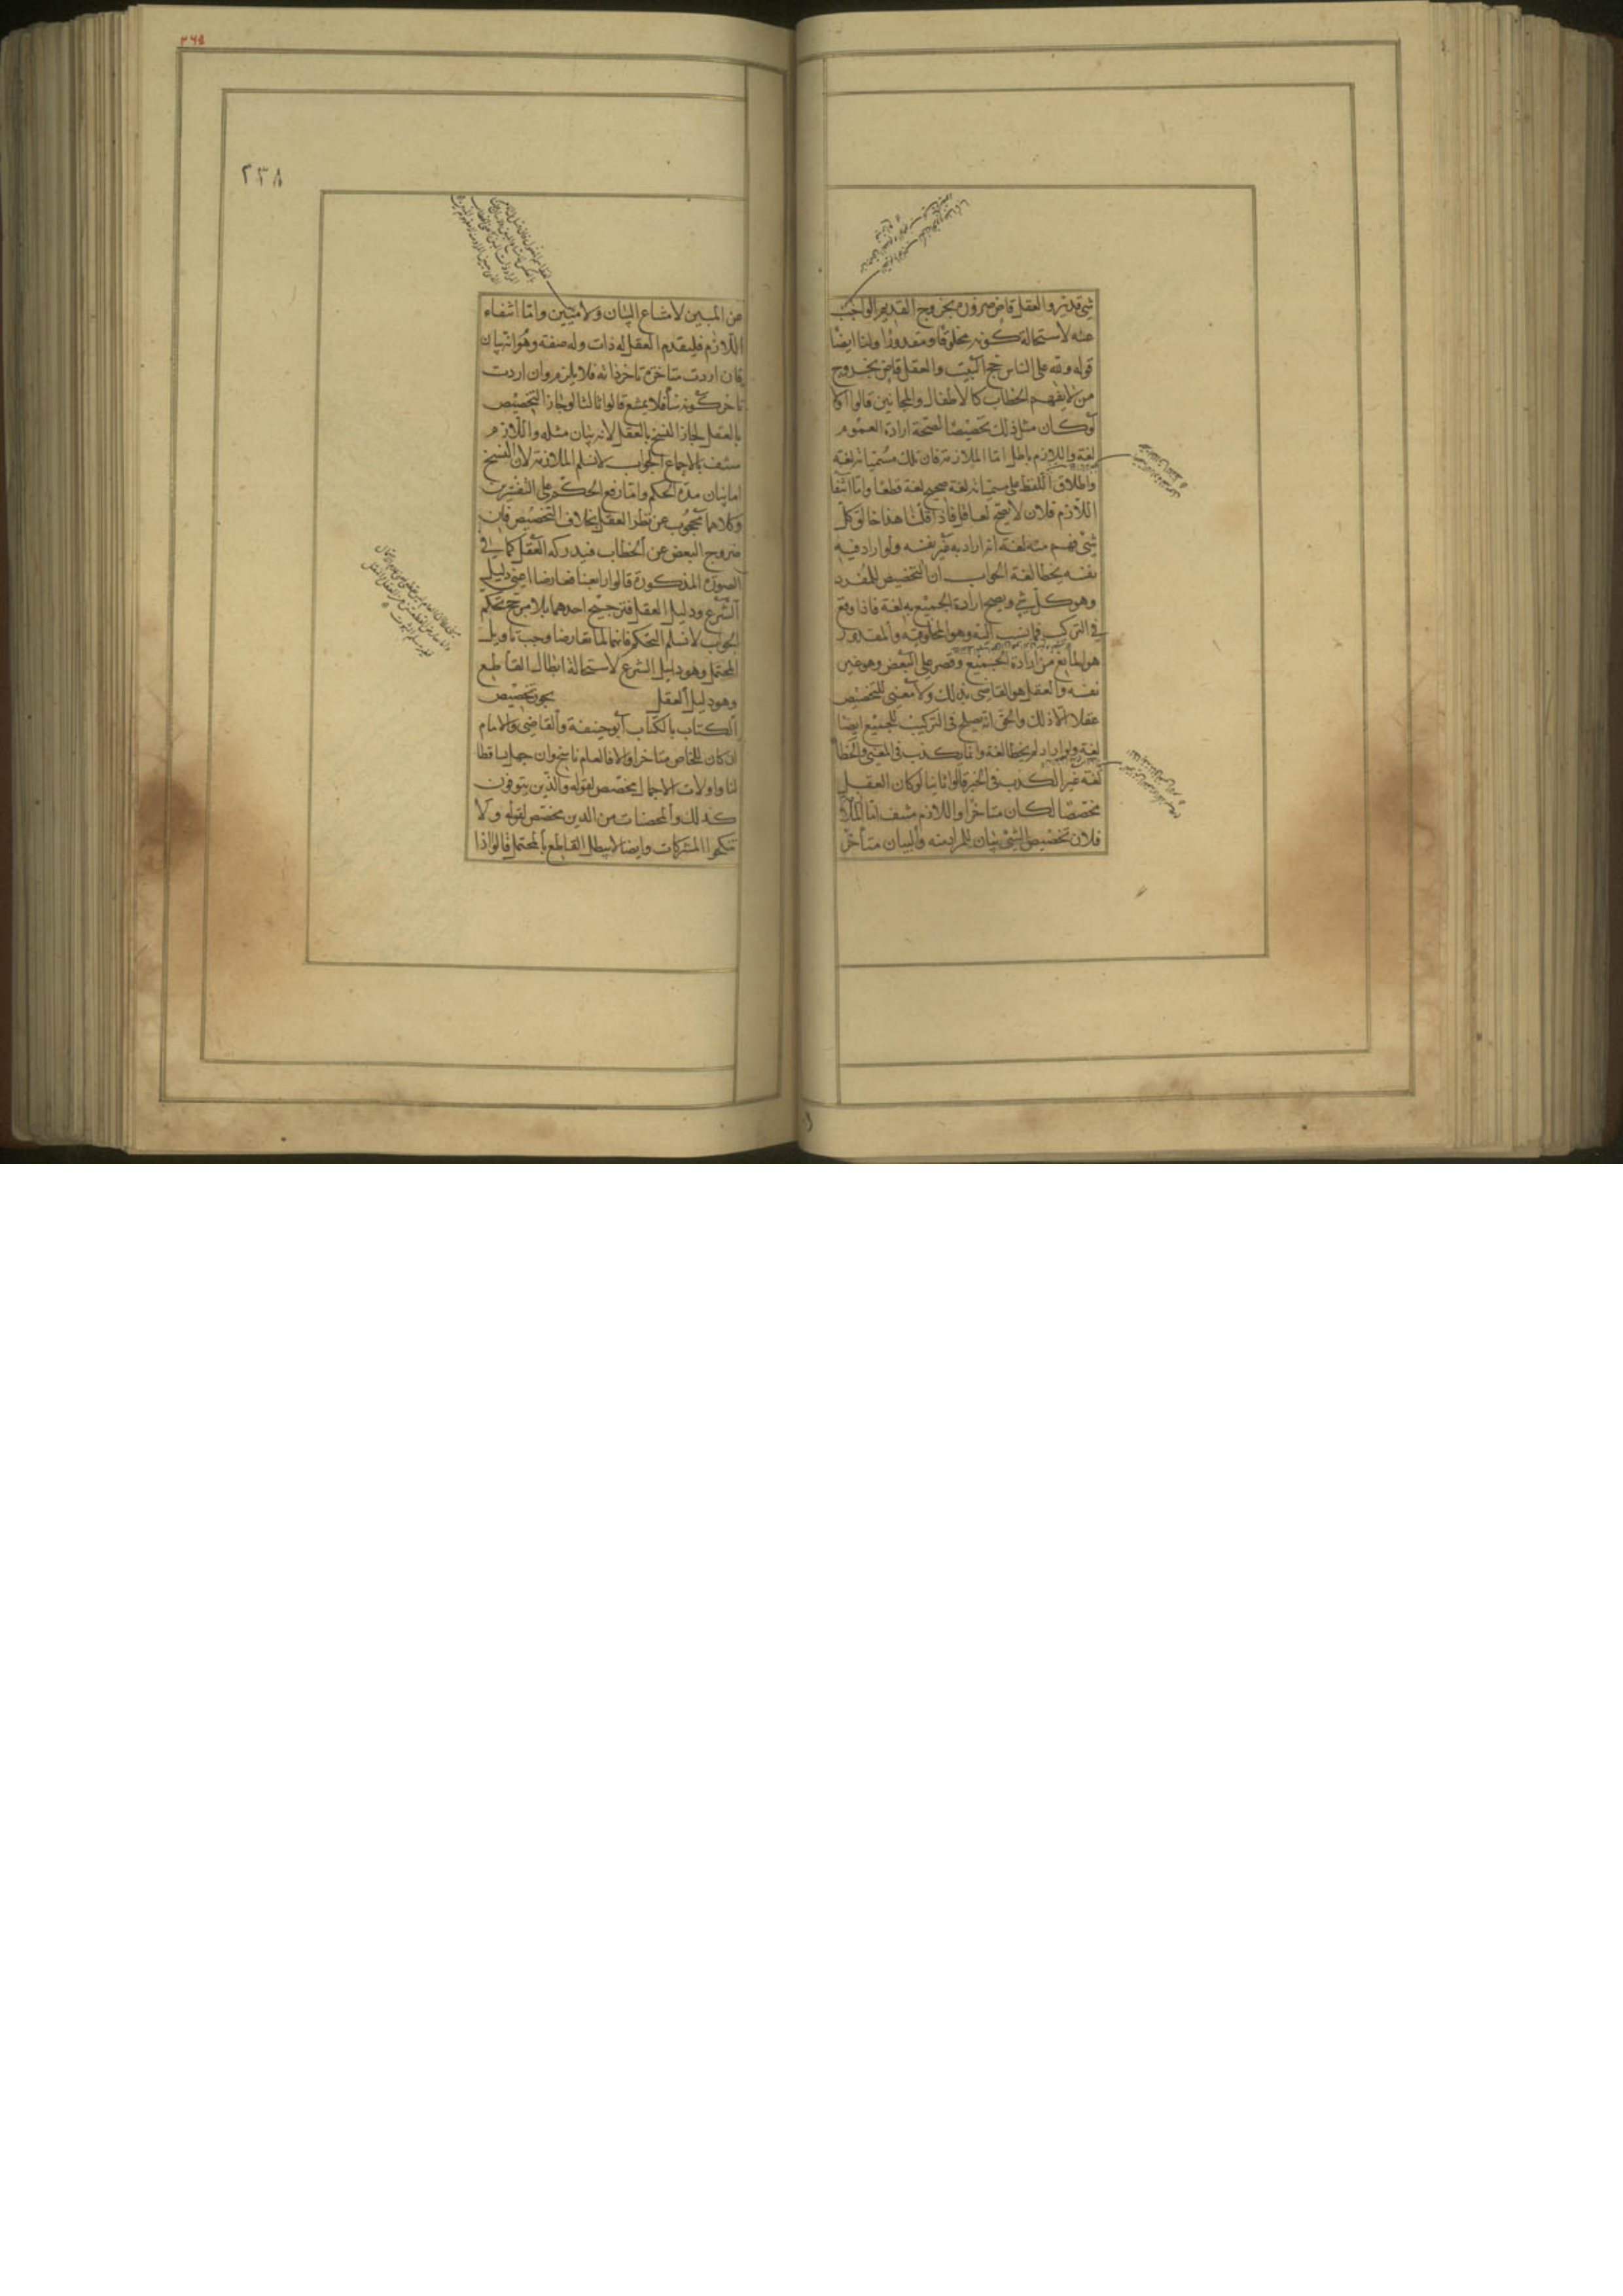 شئ قدير والعقل قاض ضرورة بخروج القديم الواجب
عنه لاستحالة كونه مخلوقا ومقدورا ولنا ايضا
قوله ولله على الناس حج البيت والعقل قاض بخروج
من لا يفهم الخطاب كالاطفال والمجانين قالوا اولا
لو كان مثل ذلك تخصيصا لصحة ارادة العموم
لغة واللازم باطل اما الملازمة فان تلك مسمياته لغة
واطلاق اللفظ على مسمياته لغة صحيح لغة قطعا واما انتفا
اللازم فلان لا يصح لعاقل فاذا قلنا هذا خالق كل
شئ فهم منه لغة انه اراد به غير نفسه ولو اراد فيه
نفسه يخطا لغة الجواب ان التخصيص للمفرد
وهو كل شئ ويصح ارادة الجميع به لغة فاذا وقع
في التركيب فما نسب اليه وهو المخلوقية والمقدورية
هو المانع من ارادة الجميع وقصر على البعض وهو غير
نفسه والعقل هو القاضى بذلك ولا معنى للتخصيص
عقلا الا ذلك والحق انه يصلح في التركيب للجميع ايضا
لغة ولو اراد لم يخطا لغة وانما يكذب في المعنى والخطا
لغة غير الكذب في الخبر قالوا ثانيا لو كان العقل
مخصصا لكان متاخرا واللازم منتف اما الملا
فلان تخصيص الشئ بيان للمراد منه والبيان متأخر
٣٦٥
٢٣٨
عن المبين لامتناع البيان ولا مبين واما انتفاء
اللازم فليقدم العقل له ذات وله صفة وهو انه بيان
فان اردت متاخرة تاخر ذاته فلا يلزم وان اردت
تاخر كونه بيانا فلا يمتنع قالوا ثالثا لو جاز التخصيص
بالعقل لجاز النسخ بالعقل لانه بيان مثله واللازم
منتف بالاجماع الجواب لا نسلم الملازمة لان النسخ
اما بيان مدة الحكم واما رفع الحكم على التفسيرين
وكلاهما محجوب عن نظر العقل بخلاف التخصيص فان
خروج البعض عن الخطاب قد يدركه العقل كما في
الصورة المذكورة قالوا رابعا تعارضا اعنى دليلي
الشرع ودليل العقل فترجيح احدهما بلا مرجح تحكم
الجواب لا نسلم التحكم فانهما لما تعارضا وجب تاويل
المحتمل وهو دليل الشرع لاستحالة ابطال القاطع
وهو دليل العقل يجوز تخصيص
الكتاب بالكتاب ابو حنيفة والقاضى والامام
ان كان الخاص متاخرا والا فالعام ناسخ وان جهل تساقطا
لنا واولات الاحمال مخصص لقوله والذين يتوفون
كذلك والمحصنات من الذين مخصص لقوله ولا
تنكحوا المشركات وايضا لا يبطل القاطع بالمحتمل قالوا اذا